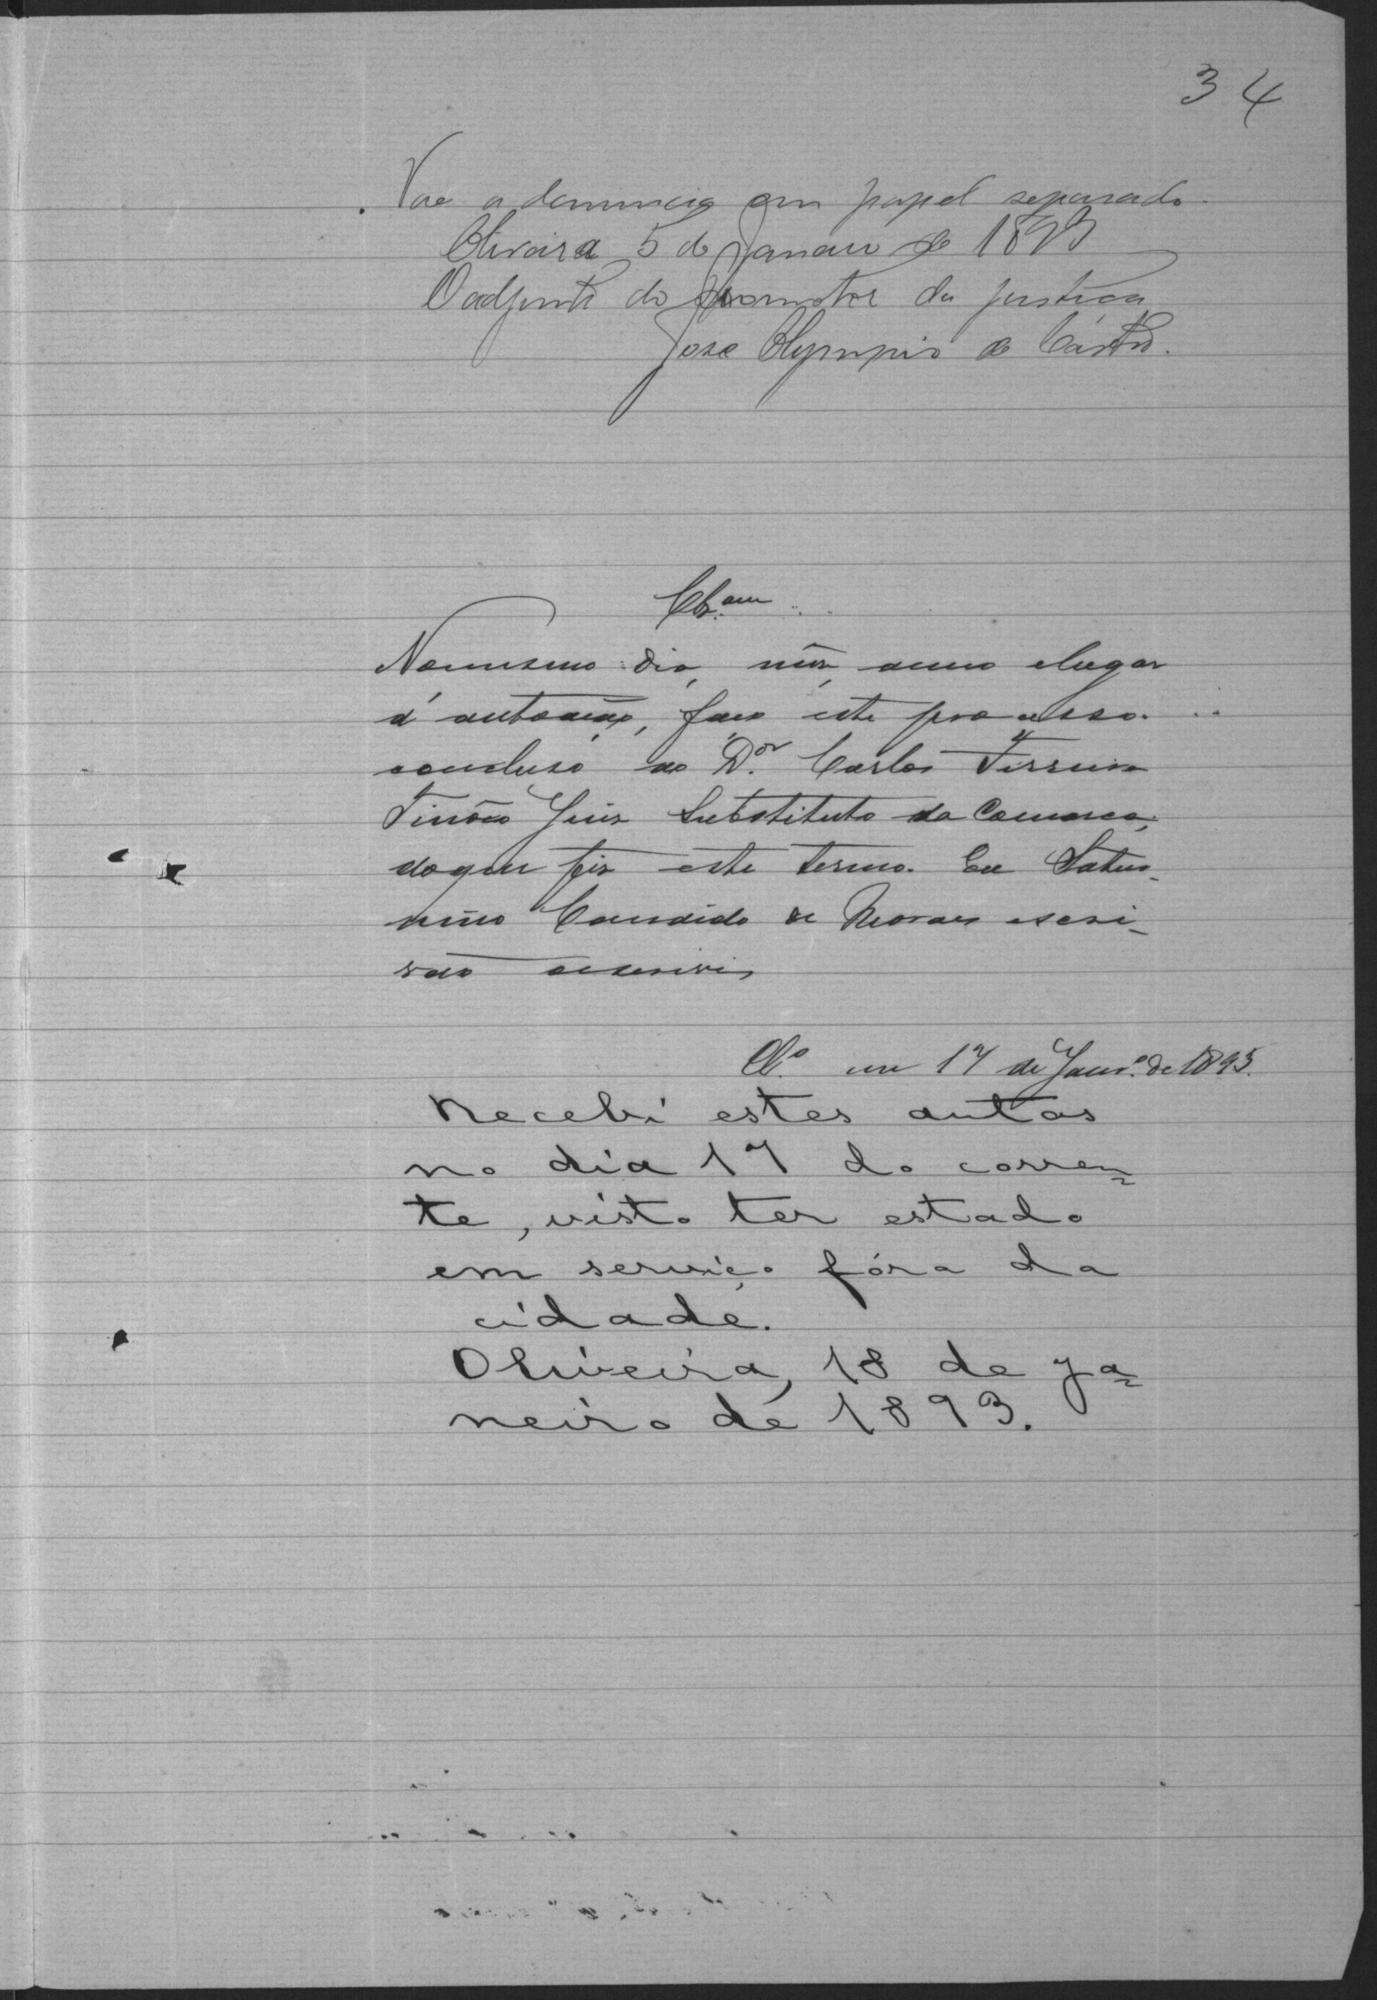 34
Vae a denuncia em papel separado.
Oliveira 5 de Janeiro de 1893
O adjunto do promotor da justiça
José Olympio de Castro.
Clz.am
No mesmo dia, mês, anno e lugar
d'autoação, faço este processo
concluso ao Dor. Carlos Ferreira
Tinôco Juiz Substituto da Comarca,
do que fiz este termo. Eu Satur-
nino Candido de Moraes escri-
vão escrevi
Clo. em 17 de Janr.o de 1893.
Recebi estes autos
no dia 17 do corren-
te, visto ter estado
em serviço fóra da
cidade.
Oliveira, 18 de ja-
neiro de 1893.